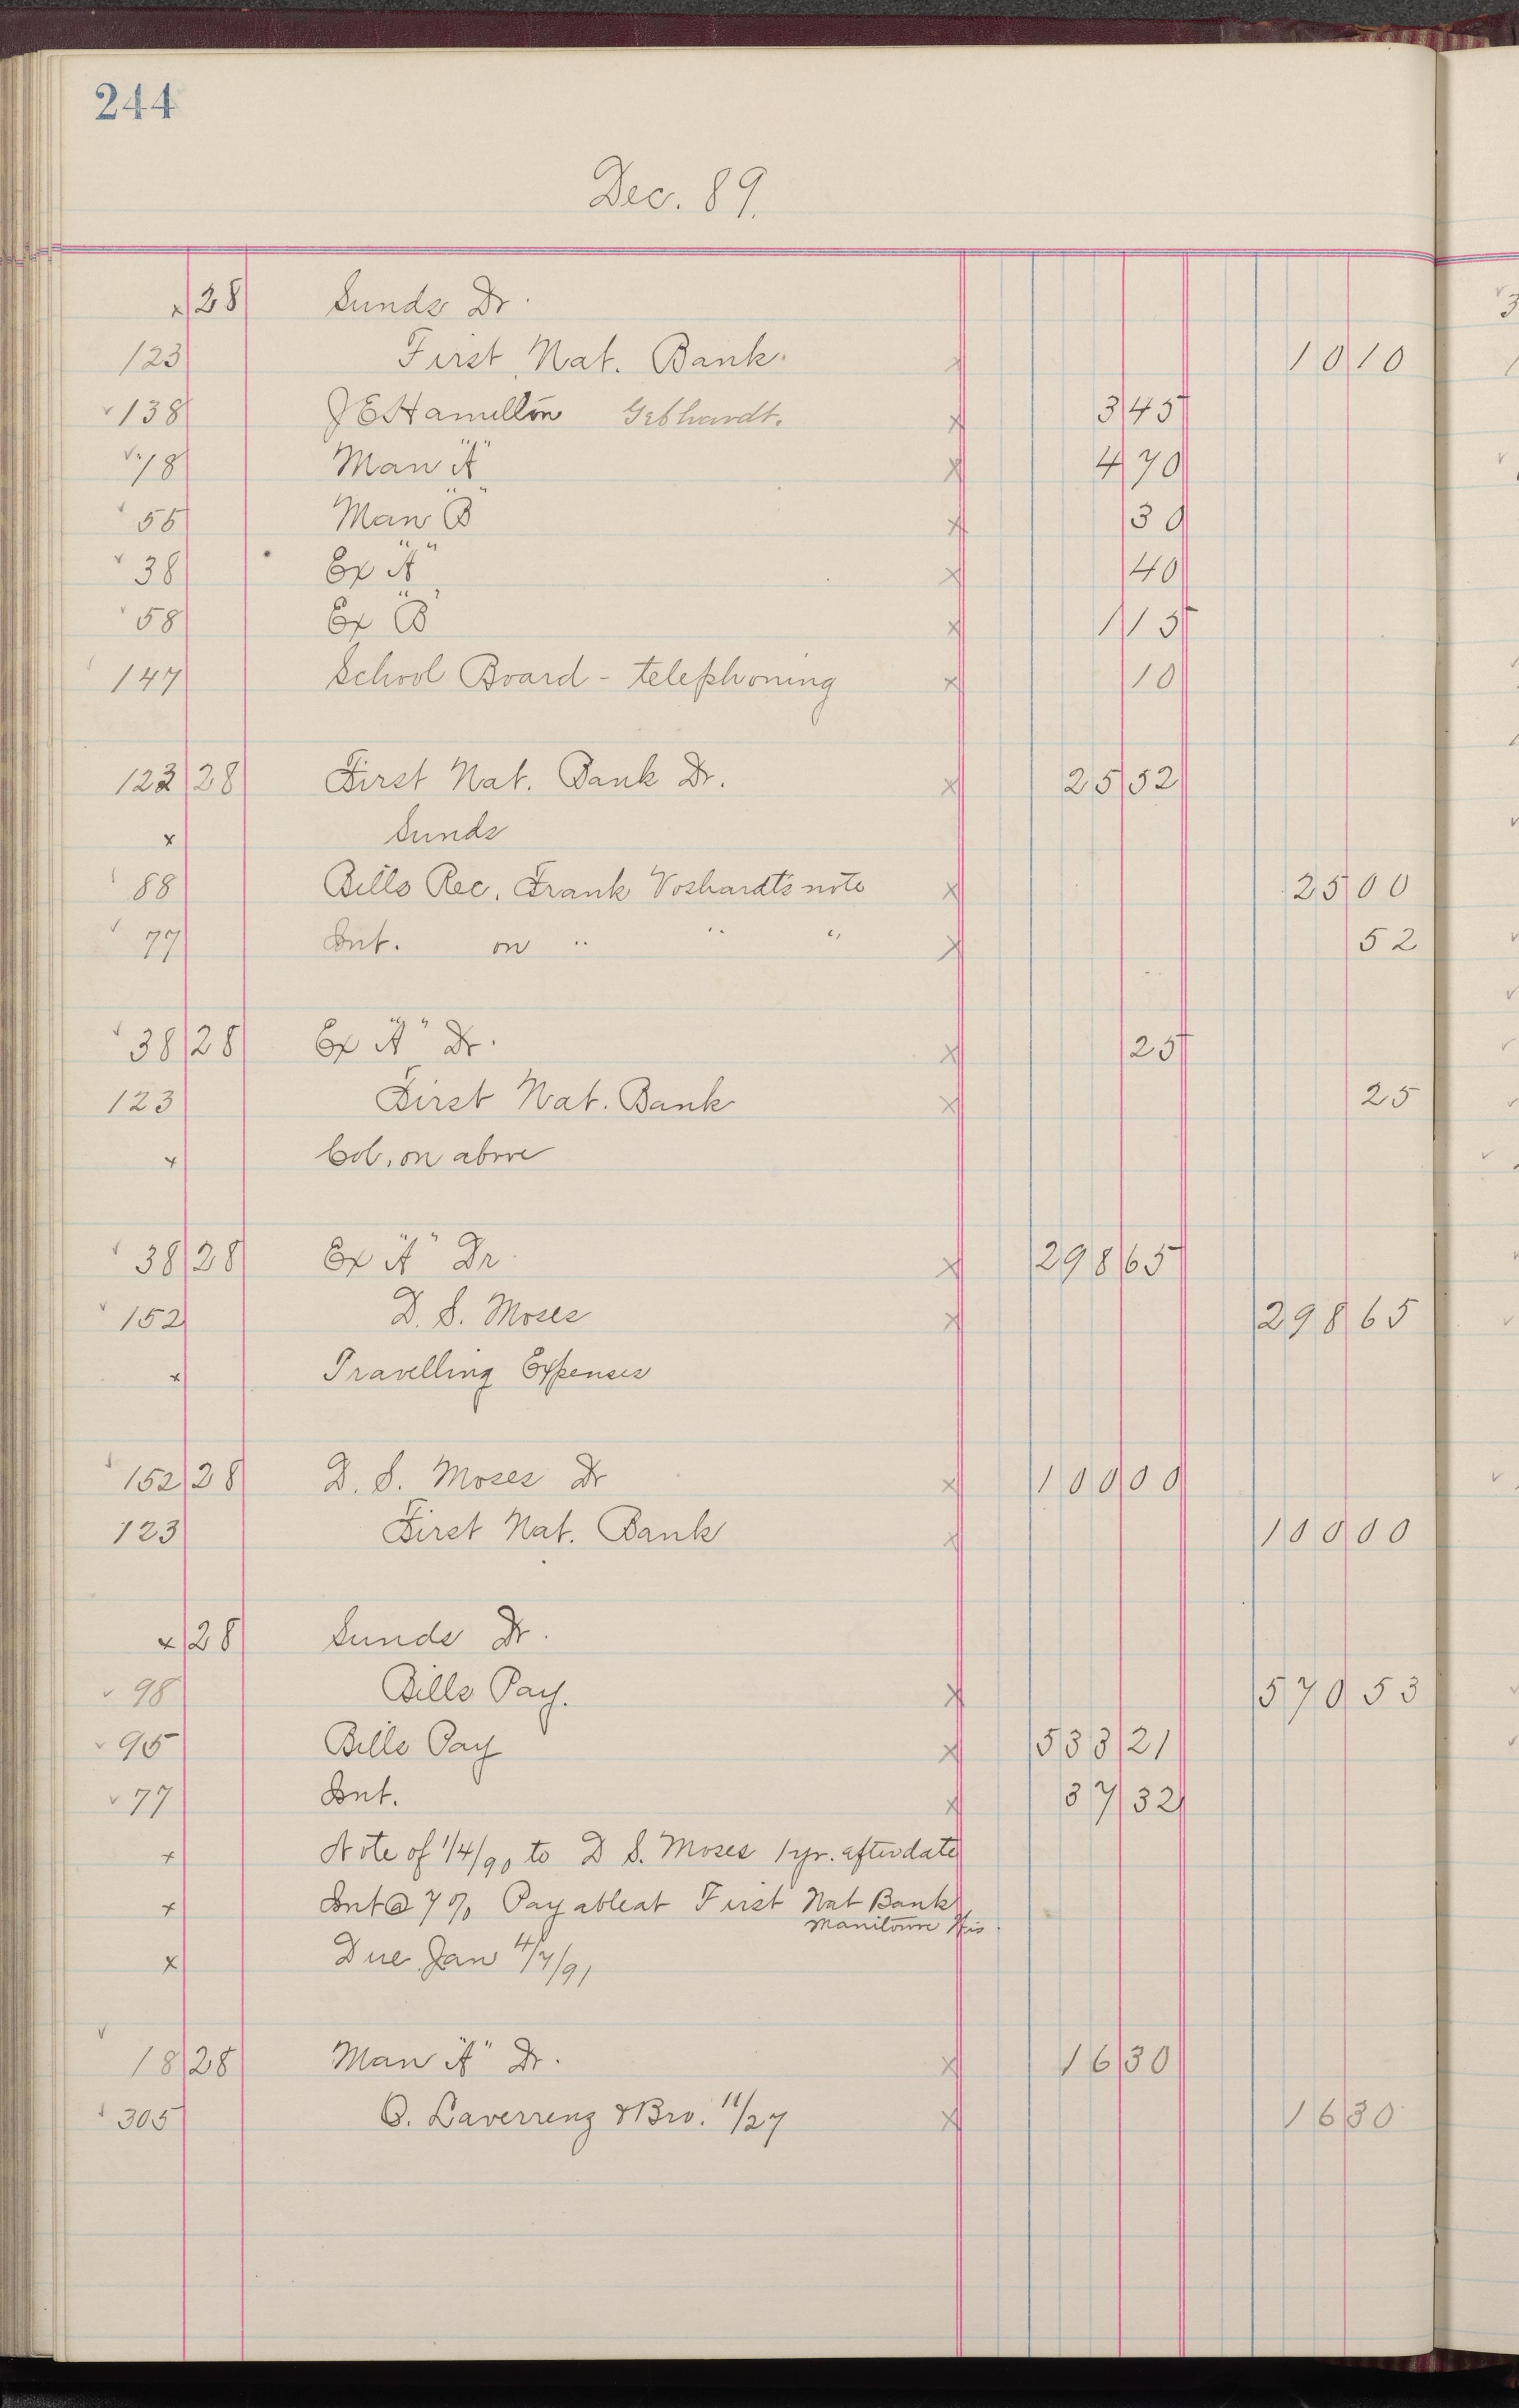 244
Dec. 89.
x 28 Sunds Dr.
123 First Nat. Bank. x 10 10
138 J E Hamilton Gebhardt. x 3 45
18 Man "A" x 4 70
55 Man "B" x 30
38 Ex "A" x 40
58 Ex "B" x 1 15
147 School Board - telephoning x 10
123 28 First Nat. Bank Dr. x 25 52
x Sunds
88 Bills Rec. Frank Voshardt's note x 25 00
77 Int. on " " " x 52
38 28 Ex "A" Dr. x 25
123 First Nat. Bank x 25
x Col. on above
38 28 Ex "A" Dr x 298 65
152 D. S. Moses x 298 65
x Travelling Expenses
152 28 D. S. Moses Dr x 100 00
123 First Nat. Bank x 100 00
x 28 Sunds Dr.
98 Bills Pay. x 570 53
95 Bills Pay x 533 21
77 Int. x 37 32
x Note of 1/4/90 to D S. Moses 1 yr. after date
x Int @ 7 % Payable at First Nat Bank
Manitowoc Wis.
x Due Jan 4/7/91
18 28 Man "A" Dr. x 16 30
305 O. Laverrenz & Bro. 11/27 x 16 30